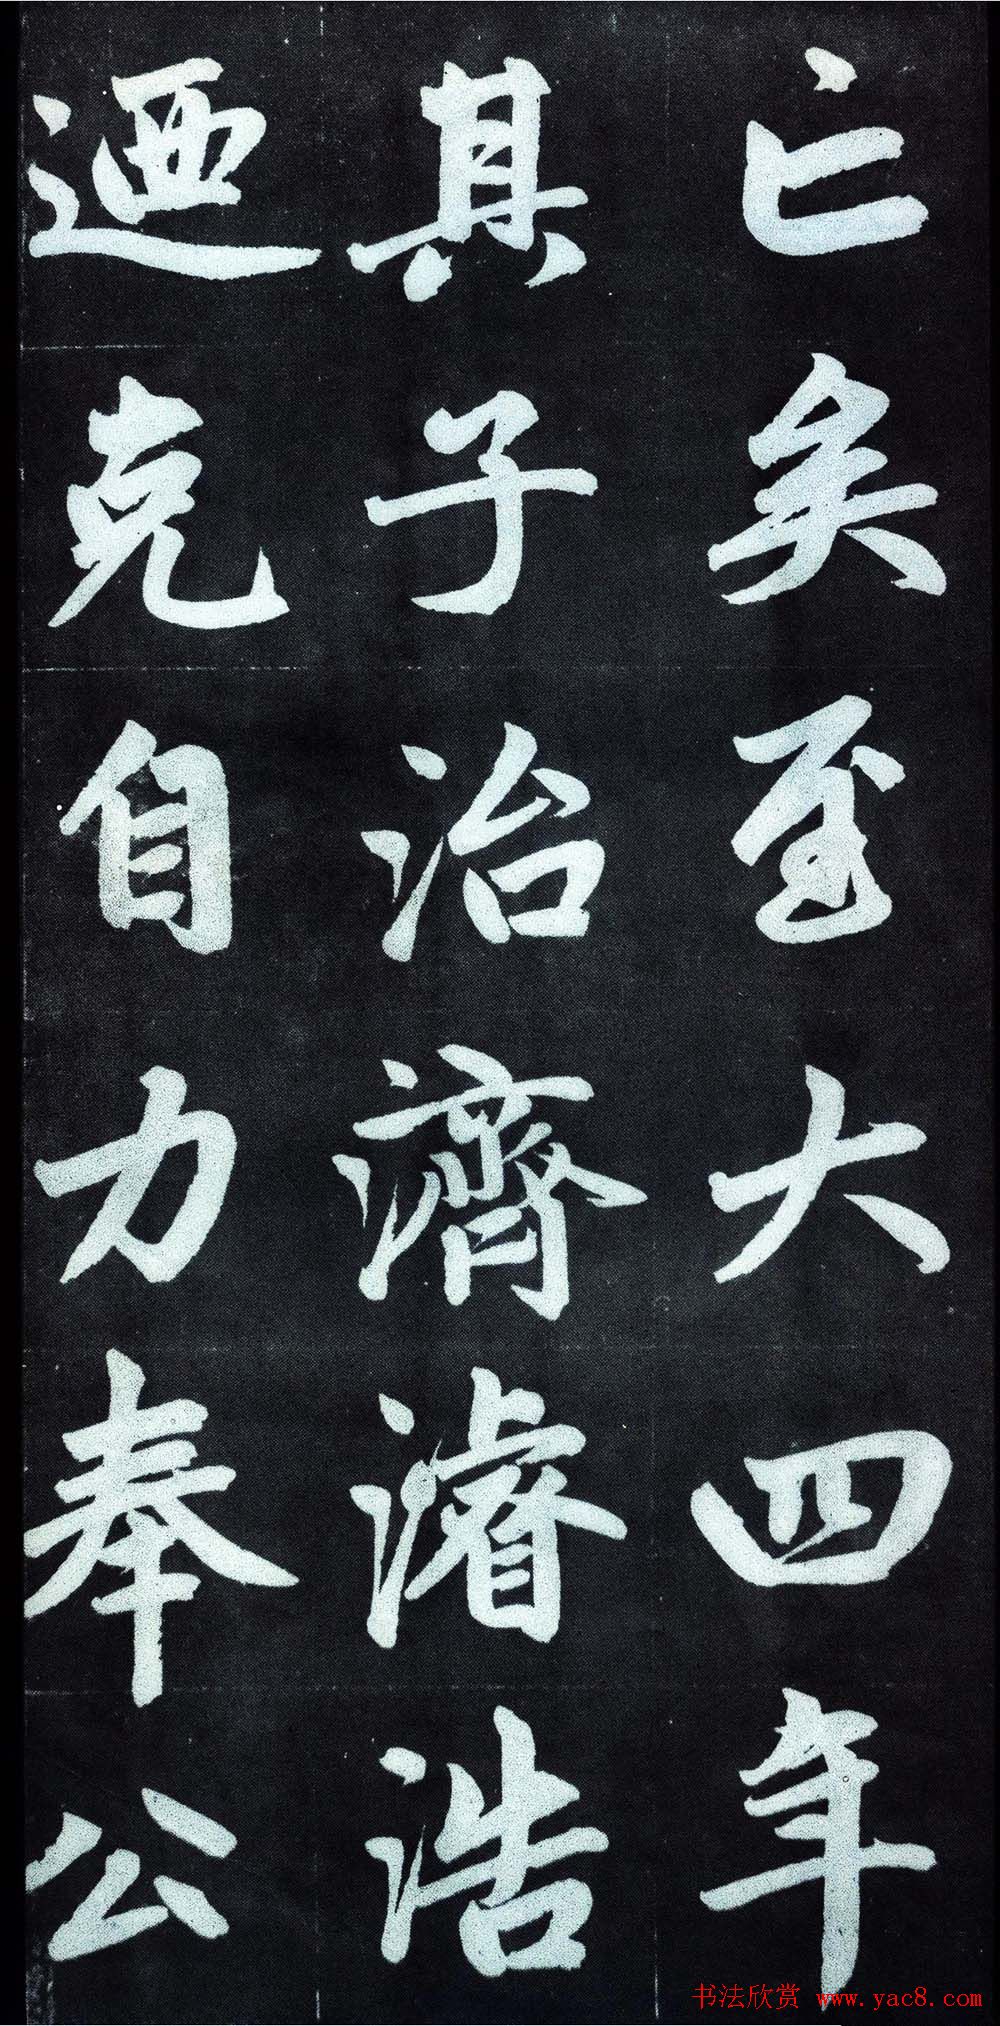 亡矣至大四年
其子治濟濬浩
迺克自力奉公
书法欣赏 www.yac8.com